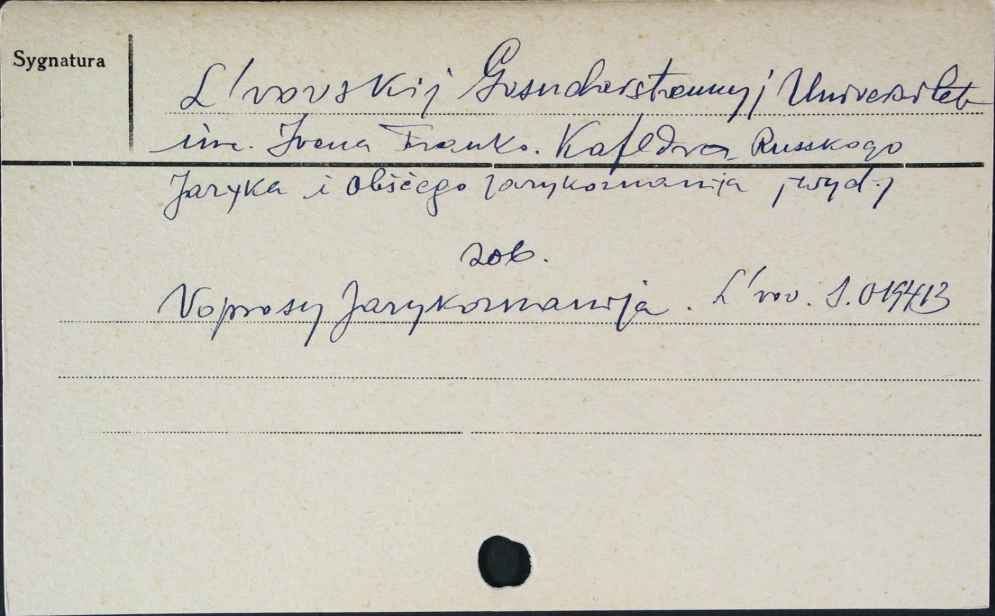 Sygnatura
L'vovskij Gosudarstvennyj Universitet
im. Ivana Franko. Kafedra Russkogo
Jazyka i Obščego Jazykoznanija /wyd./
zob.
Voprosy Jazykoznanija. L'vov. S.019413